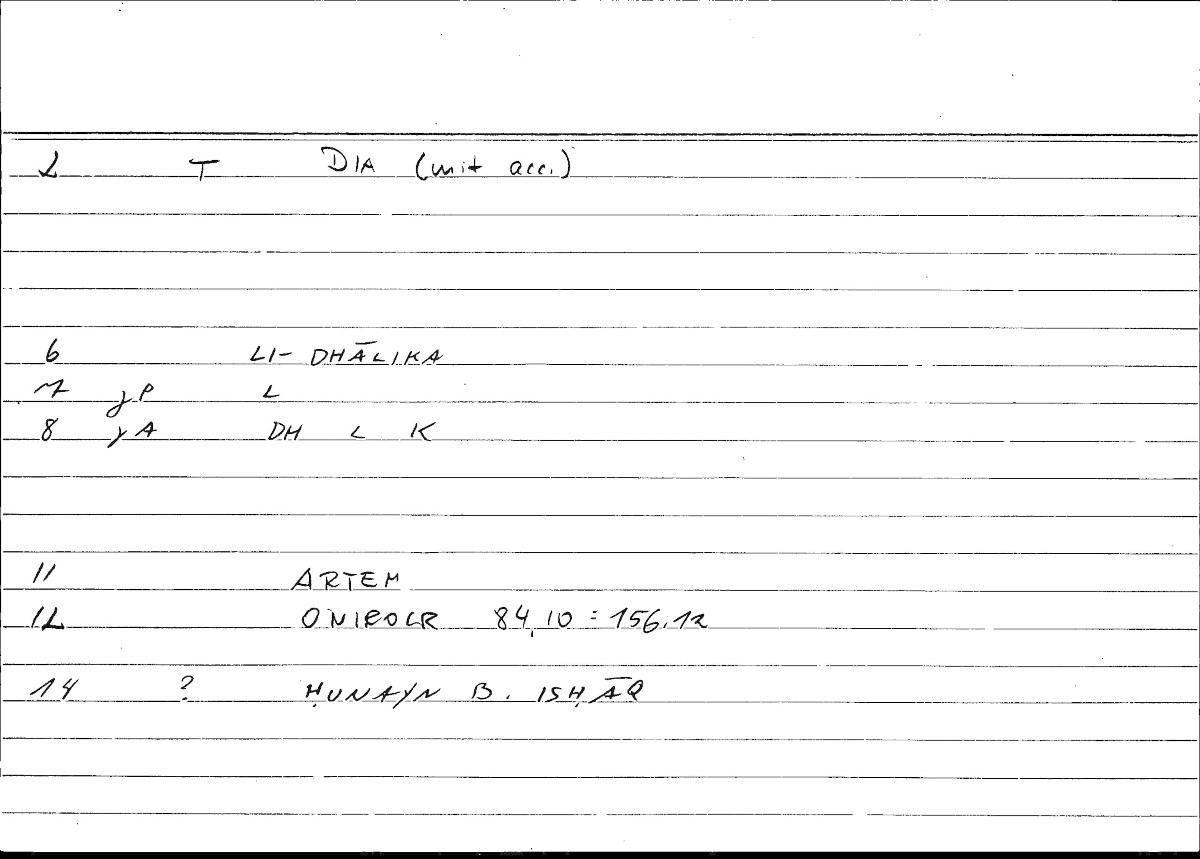 2 T DIA (mit acc.)
6 LI- DHĀLIKA
7 γP L
8 γA DH L K
11 ARTEM
12 ONIROCR 84,10 = 156.12
14 ? ḤUNAYN B. ISḤĀQ